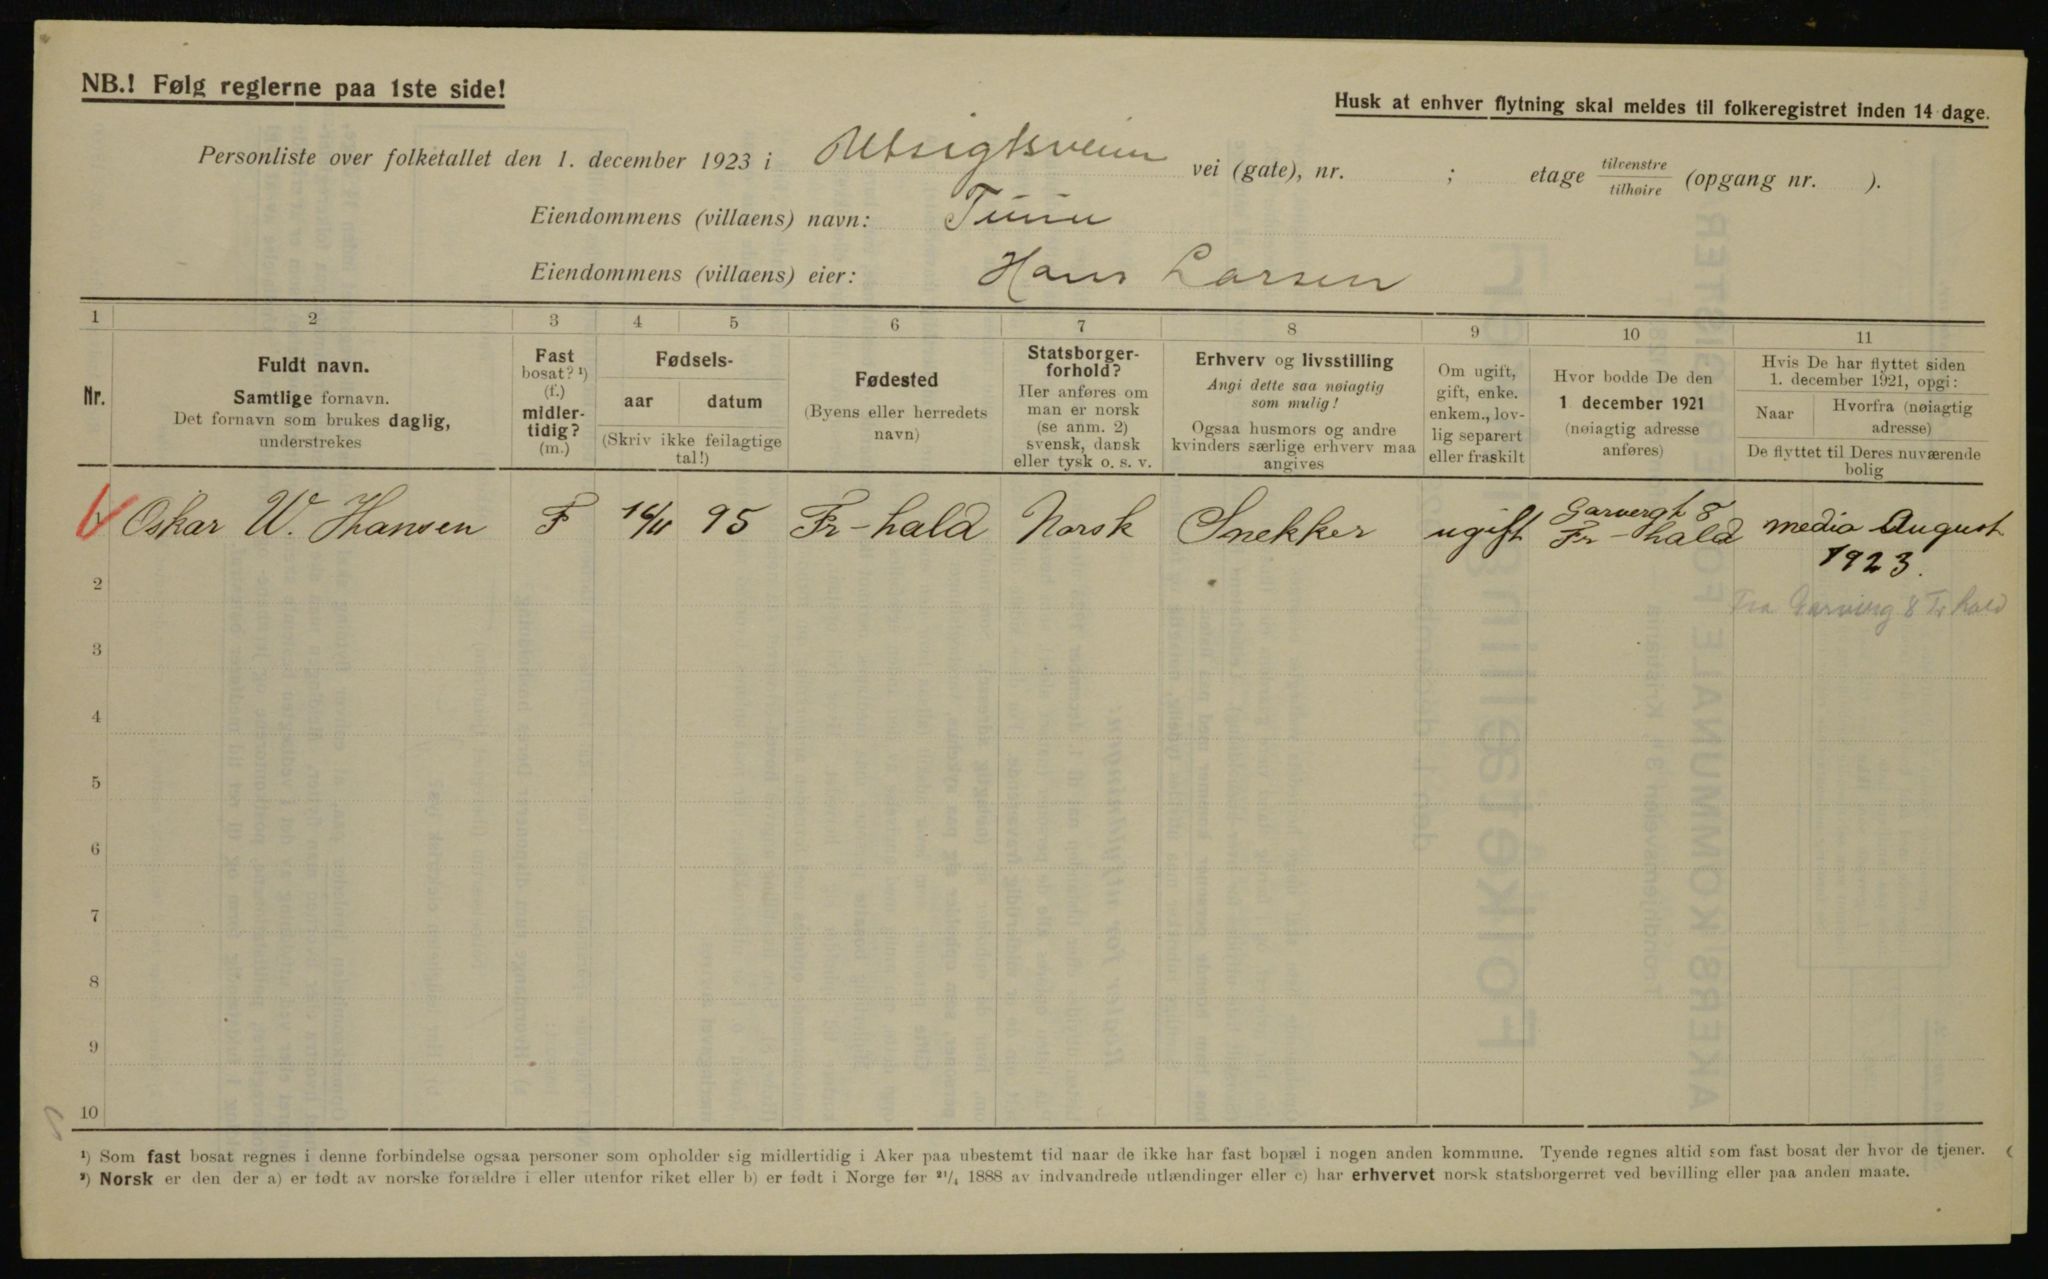 NB.! Følg reglerne paa 1ste side!
Husk at enhver flytning skal meldes til folkeregistret inden 14 dage.
Personliste over folketallet den 1. december 1923 i Utsigtsveien vei (gate), nr. ; etage tilvenstre tilhøire (opgang nr. ).
Eiendommens (villaens) navn:
Eiendommens (villaens) eier: Hans Larsen
1 2 3 4 5 6 7 8 9 10 11
Nr.
Fuldt navn.
Samtlige fornavn.
Det fornavn som brukes daglig,
understrekes
Fast
bosat? ¹)
(f.)
midler-
tidig?
(m.)
Fødsels-
aar datum
(Skriv ikke feilagtige
tal!)
Fødested
(Byens eller herredets
navn)
Statsborger-
forhold?
Her anføres om
man er norsk
(se anm. 2)
svensk, dansk
eller tysk o. s. v.
Erhverv og livsstilling
Angi dette saa nøiagtig
som mulig!
Ogsaa husmors og andre
kvinders særlige erhverv maa
angives
Om ugift,
gift, enke.
enkem., lov-
lig separert
eller fraskilt
Hvor bodde De den
1 december 1921
(nøiagtig adresse
anføres)
Hvis De har flyttet siden
1. december 1921, opgi:
Naar Hvorfra (nøiagtig
adresse)
De flyttet til Deres nuværende
bolig
1 Oskar W. Hansen F 16/11 95 Fr-hald Norsk Snekker ugift Garvergt 8 Fr-hald media August
1923.
2 Fra Garverg 8 Fr hald
3
4
5
6
7
8
9
10
¹) Som fast bosat regnes i denne forbindelse ogsaa personer som opholder sig midlertidig i Aker paa ubestemt tid naar de ikke har fast bopæl i nogen anden kommune. Tyende regnes altid som fast bosat der hvor de tjener.
²) Norsk er den der a) er født av norske forældre i eller utenfor riket eller b) er født i Norge før ²¹/₄ 1888 av indvandrede utlændinger eller c) har erhvervet norsk statsborgerret ved bevilling eller paa anden maate.